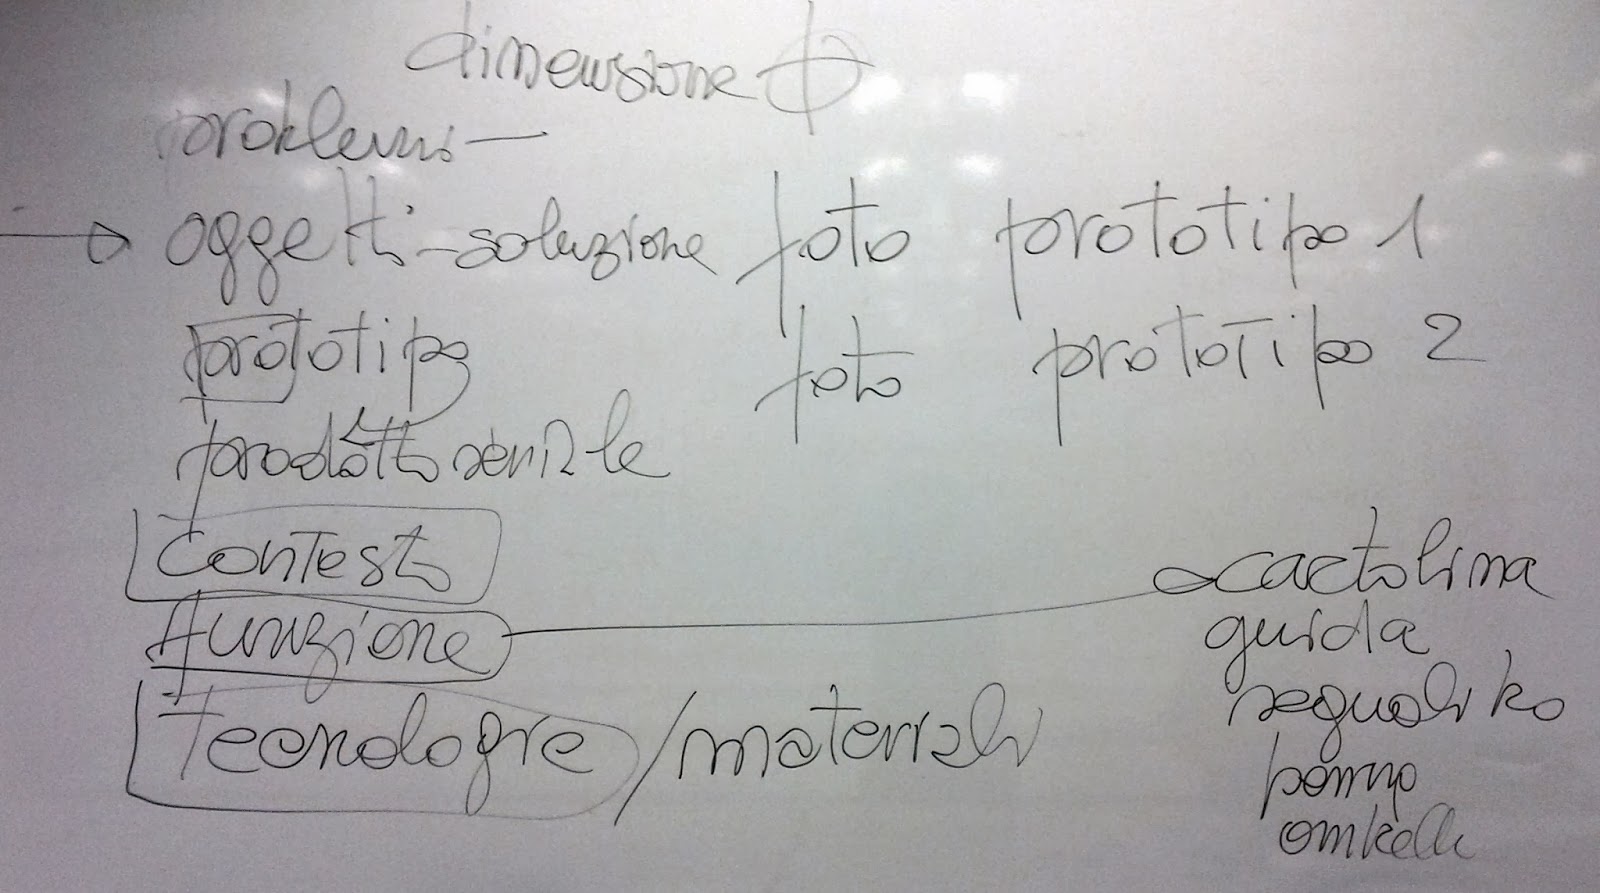 dimensione
problemi -
→ oggetti - soluzione foto prototipo 1
prototipo foto prototipo 2
prodotto seriale
contesto
funzione
tecnologie / materiali
cartolina
guida
segualibro